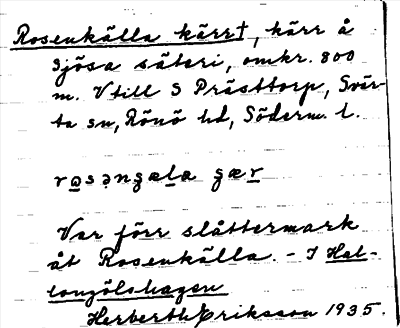 Rosenkälla kärr†, kärr å
Sjösa säteri, omkr. 800
m. V till S Prästtorp, Svär-
ta sn, Rönö hd, Söderm. l.
Var förr slåttermark
åt Rosenkälla. – I Hal-
longölshagen
Herberth Eriksson 1935.